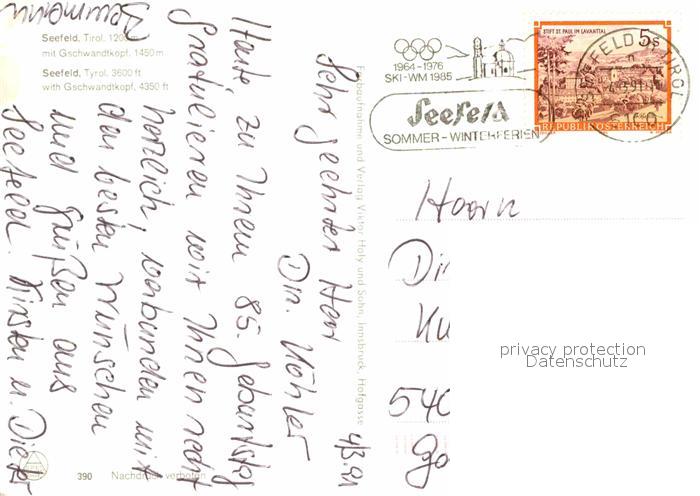 Seefeld, Tirol. 1200 m
mit Gschwandtkopf, 1450 m
Seefeld, Tyrol. 3600 ft
with Gschwandtkopf, 4350 ft
4/3.91
Sehr geehrter Herr
Dir. Köhler
Heute, zu Ihrem 85. Geburtstag
gratulieren wir Ihnen recht
herzlich, verbunden mit
den besten Wünschen
und Grüßen aus
Seefeld. Kirsten u. Dieter
Baumann
390 Nachdruck verboten
Farbaufnahme und Verlag Viktor Holy und Sohn, Innsbruck, Hofgasse
1964-1976
SKI-WM 1985
Seefeld
SOMMER-WINTERFERIEN
STIFT ST. PAUL IM LAVANTTAL
5s
REPUBLIK ÖSTERREICH
SEEFELD TIROL
6100
Herrn
Dir
Kö
540
privacy protection
Datenschutz